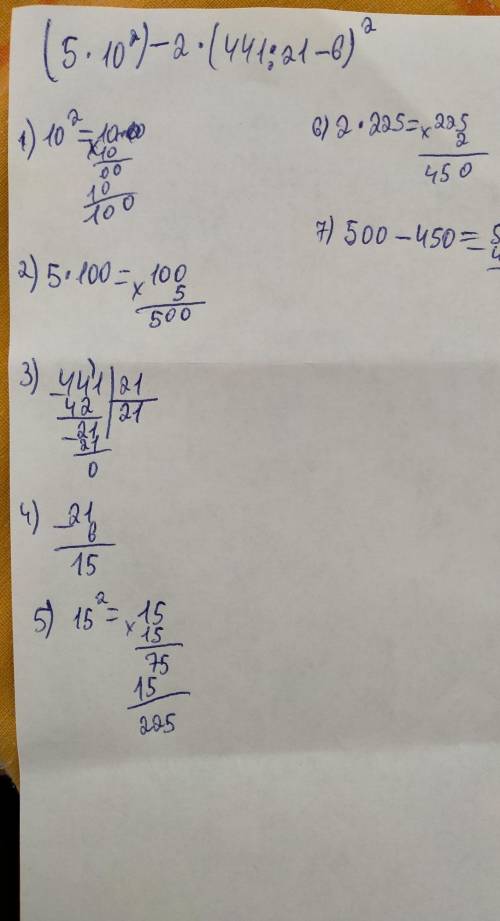 (5·10²)-2·(441:21-6)²
1) 10²=10·10
×10
00
10
100
2) 5·100= ×100
5
500
3) -441|21
42|21
-21
21
0
4) -21
6
15
5) 15²= ×15
15
75
15
225
6) 2·225= ×225
2
450
7) 500-450=